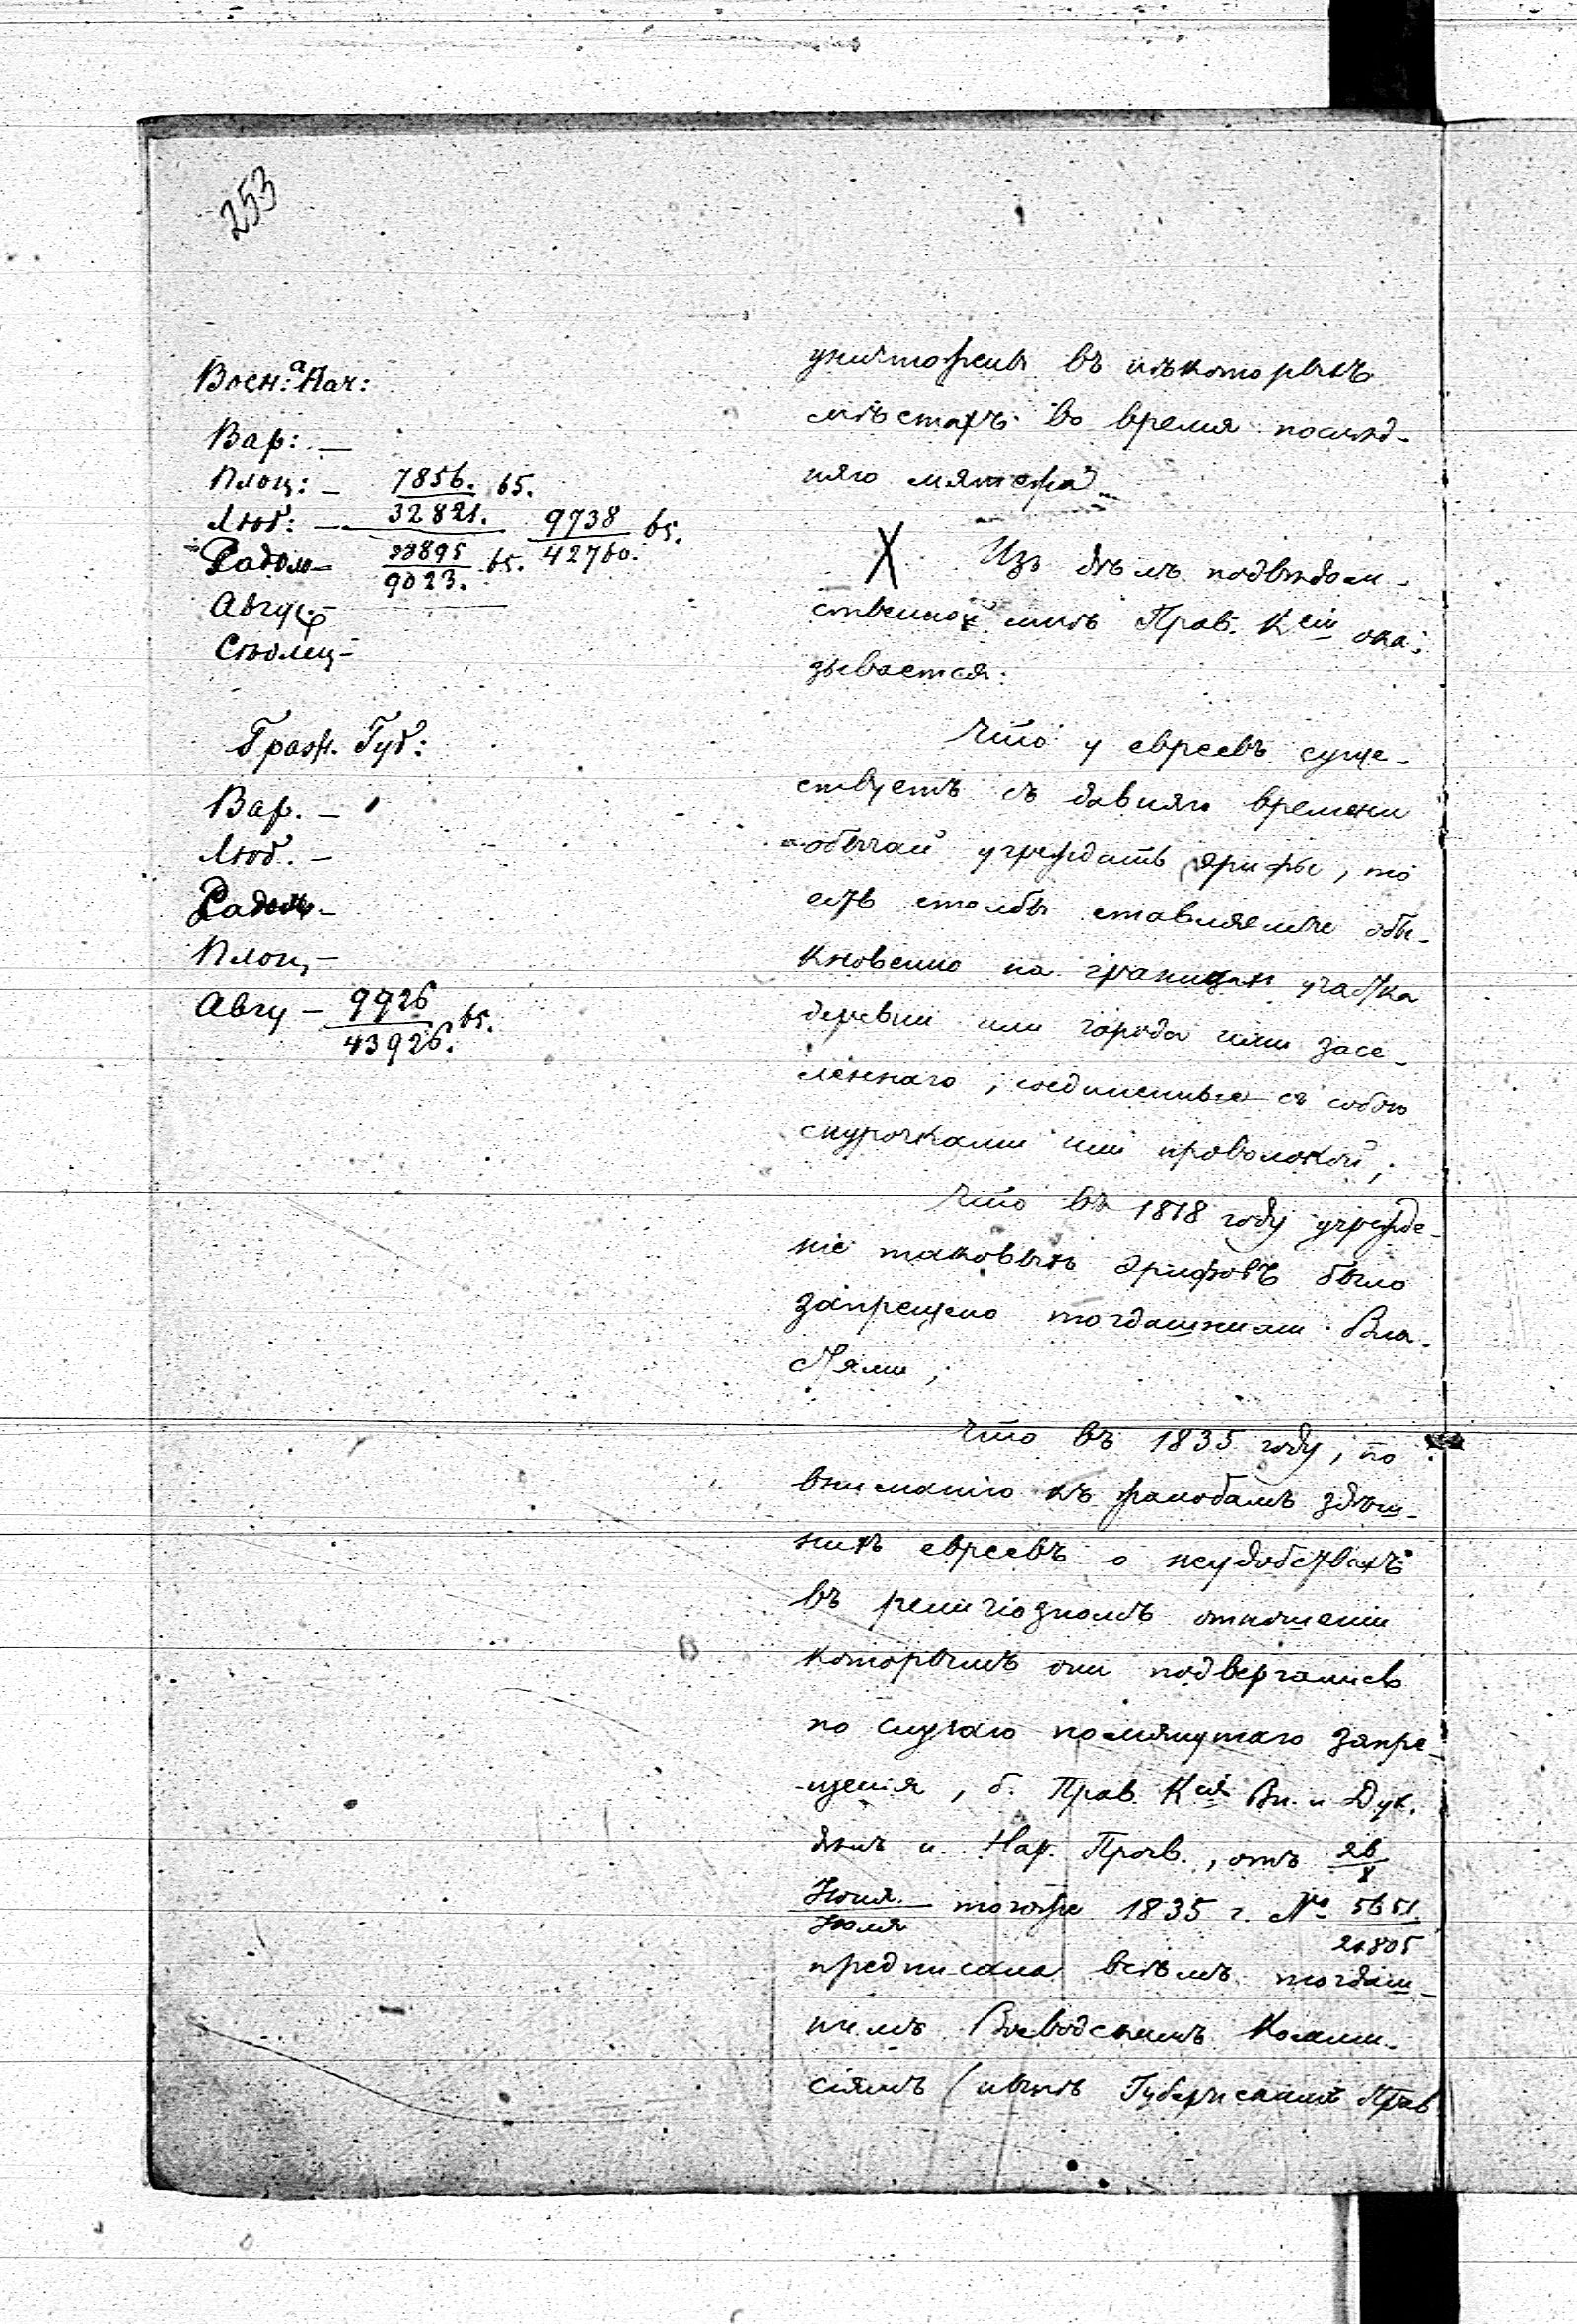 253
Воен: Нач:
Вар: —
Плоц: — 7856. 65.
32821.
Люб: — 9738 65.
42760.
Радом — 38895 65.
9023.
Авгус —
Седлец —
Гражд. Губ:
Вар. —
Люб. —
Радом —
Плоц —
Авгу — 9926 65.
43926.
уничтожены въ нѣкоторыхъ
мѣстахъ во время послѣд-
няго мятежа.
X Изъ дѣлъ подвѣдом-
ственной мнѣ Прав. Ксіи ока-
зывается:
Что у евреевъ суще-
ствуетъ съ давняго времени
обычай учреждать эрифы, то
есть столбы ставляемые обы-
кновенно на границах участка
деревни или города ими засе-
леннаго, соединенные съ собою
снурочками или проволокой;
Что въ 1818 году учрежде-
ніе таковыхъ эрифовъ было
запрещено тогдашними Вла-
стями;
Что въ 1835 году, по
вниманію къ жалобамъ здѣш-
нихъ евреевъ о неудобствахъ
въ религіозномъ отношеніи
которымъ они подвергались
по случаю помянутаго запре-
щенія, б. Прав. Ксія Вн. и Дух.
дѣлъ и Нар. Просв., отъ 26
Іюня
Іюля тогоже 1835 г. № 5651
21805
предписала всѣмъ тогдаш-
нимъ Воеводскимъ Комми-
сіямъ (нынѣ Губернскимъ Прав